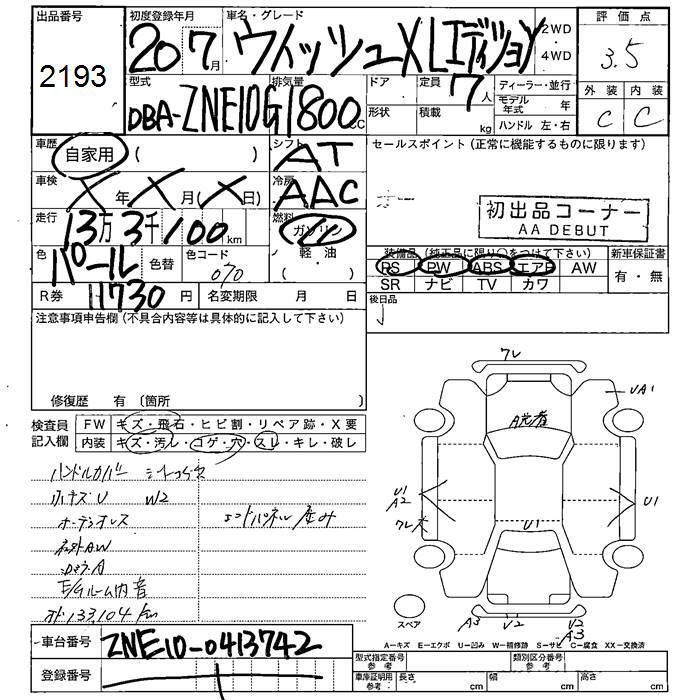 出品番号
2193
初度登録年月
20 7月
車名・グレード
ウィッシュ XLエディション
2WD
・
4WD
評価点
3.5
外装 内装
C C
型式
DBA-ZNE10G
排気量
1800cc
ドア
定員
7人
形状
積載
kg
ディーラー・並行
モデル年式 年
ハンドル 左・右
車歴
自家用 ( )
シフト
AT
車検
X年X月(X日)
冷房
AAC
走行
13万3千100km
燃料
ガソリン
軽・油
( )
色
パール
色替
色コード
070
R券 11730円
名変期限 月 日
セールスポイント(正常に機能するものに限ります)
初出品コーナー
AA DEBUT
装備品(純正品に限り○をつけて下さい)
PS PW ABS エアB AW
SR ナビ TV カワ
新車保証書
有・無
後日品
注意事項申告欄(不具合内容等は具体的に記入して下さい)
修復歴 有 〔箇所 〕
検査員記入欄
FW キズ・飛石・ヒビ割・リペア跡・X要
内装 キズ・汚レ・コゲ・穴・スレ・キレ・破レ
ハンドルカバー
W2
オーディオレス
エンドパネル 歪み
E/Gルーム内音
133,104km
車台番号 ZNE10-0413742
登録番号
ワレ
UA1
U1
A2
U1
U1
スペア
A3
U2
U2
A3
A-キズ E-エクボ U-凹み W-補修跡 S-サビ C-腐食 XX-交換済
型式指定番号
参考
類別区分番号
参考
車庫証明用
参考
長さ cm 幅 cm 高さ cm